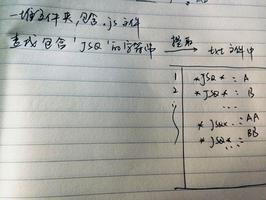 一堆文件夹,包含.js文件
查找包含'JSQ'的字符串 提取→ txt文件中
1 *JSQ* : A
2 *JSQ* : B
...
*JSQ* : AA
*JSQ* : BB